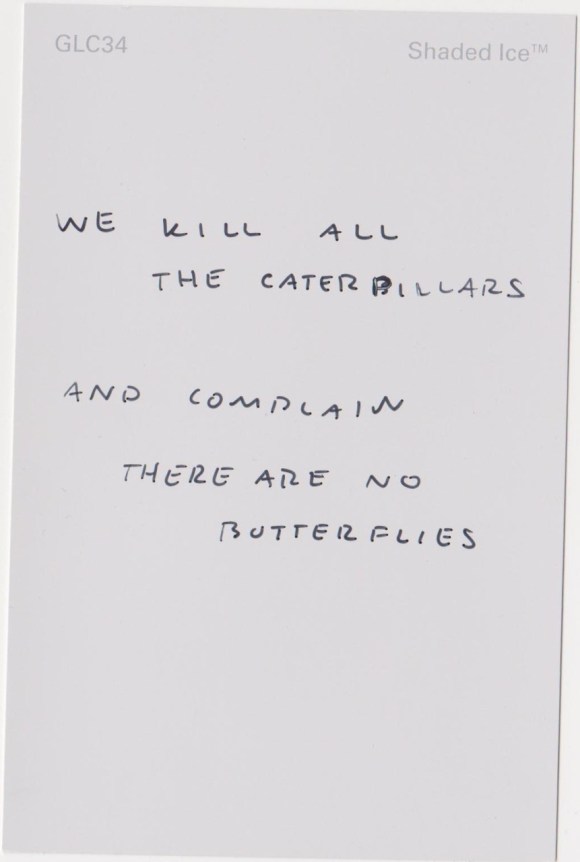 GLC34 Shaded Ice™
WE KILL ALL
THE CATERPILLARS
AND COMPLAIN
THERE ARE NO
BUTTERFLIES